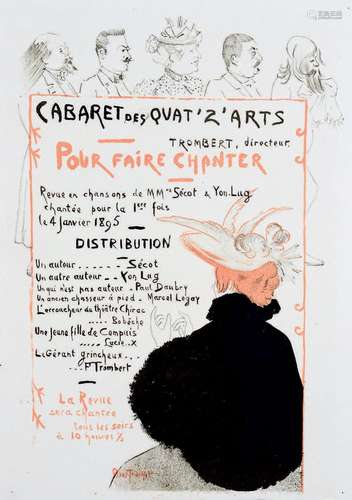 CABARET DES QUAT'Z'ARTS
TROMBERT, directeur
POUR FAIRE CHANTER
Revue en chansons de MMrs Sécot & Yon-Lug
chantée pour la 1ere fois
le 4 Janvier 1895
DISTRIBUTION
Un auteur ...... Sécot
Un autre auteur .. Yon Lug
Un qui n'est pas auteur . Paul Daubry
Un ancien chasseur à pied . Marcel Legay
L'arracheur du théâtre Chirac
..... Bobèche
Une Jeune fille de Compiis
..... Lucie..x
Le Gérant grincheux...
... P Trombert
La Revue
sera chantée
tous les soirs
à 10 heures ½